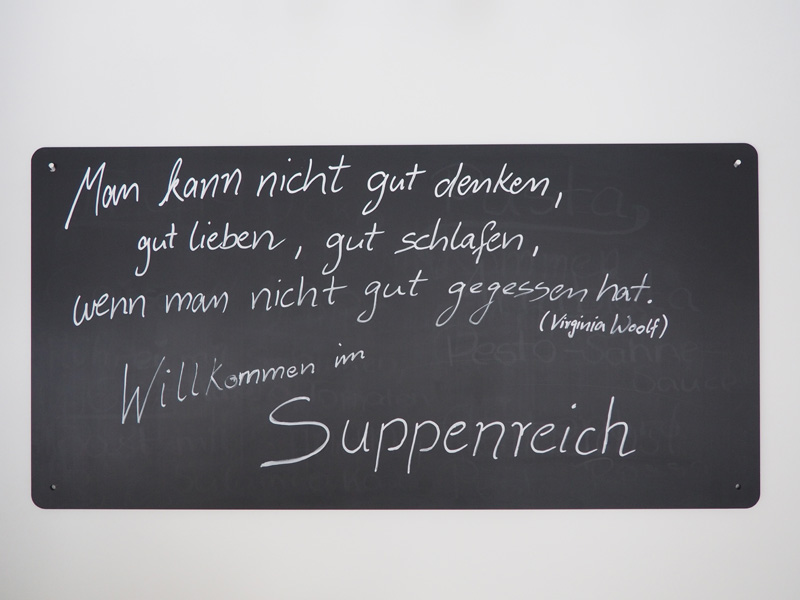 Man kann nicht gut denken,
gut lieben, gut schlafen,
wenn man nicht gut gegessen hat.
(Virginia Woolf)
Willkommen im
Suppenreich